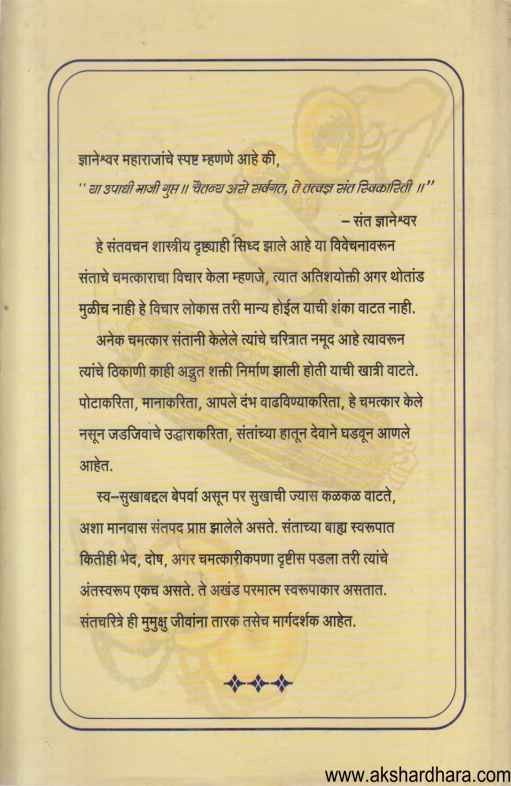 ज्ञानेश्वर महाराजांचे स्पष्ट म्हणणे आहे की,
" या उपाधी माजी गुप्त ॥ चैतन्य असे सर्वगत, ते तत्वज्ञ संत स्विकारिती ॥"
– संत ज्ञानेश्वर
हे संतवचन शास्त्रीय दृष्ट्याही सिध्द झाले आहे या विवेचनावरून
संताचे चमत्काराचा विचार केला म्हणजे, त्यात अतिशयोक्ती अगर थोतांड
मुळीच नाही हे विचार लोकास तरी मान्य होईल याची शंका वाटत नाही.
अनेक चमत्कार संतानी केलेले त्यांचे चरित्रात नमूद आहे त्यावरून
त्यांचे ठिकाणी काही अद्भुत शक्ती निर्माण झाली होती याची खात्री वाटते.
पोटाकरिता, मानाकरिता, आपले दंभ वाढविण्याकरिता, हे चमत्कार केले
नसून जडजिवाचे उद्धाराकरिता, संतांच्या हातून देवाने घडवून आणले
आहेत.
स्व–सुखाबद्दल बेपर्वा असून पर सुखाची ज्यास कळकळ वाटते,
अशा मानवास संतपद प्राप्त झालेले असते. संताच्या बाह्य स्वरूपात
कितीही भेद, दोष, अगर चमत्कारीकपणा दृष्टीस पडला तरी त्यांचे
अंतस्वरूप एकच असते. ते अखंड परमात्म स्वरूपाकार असतात.
संतचरित्रे ही मुमुक्षु जीवांना तारक तसेच मार्गदर्शक आहेत.
www.akshardhara.com